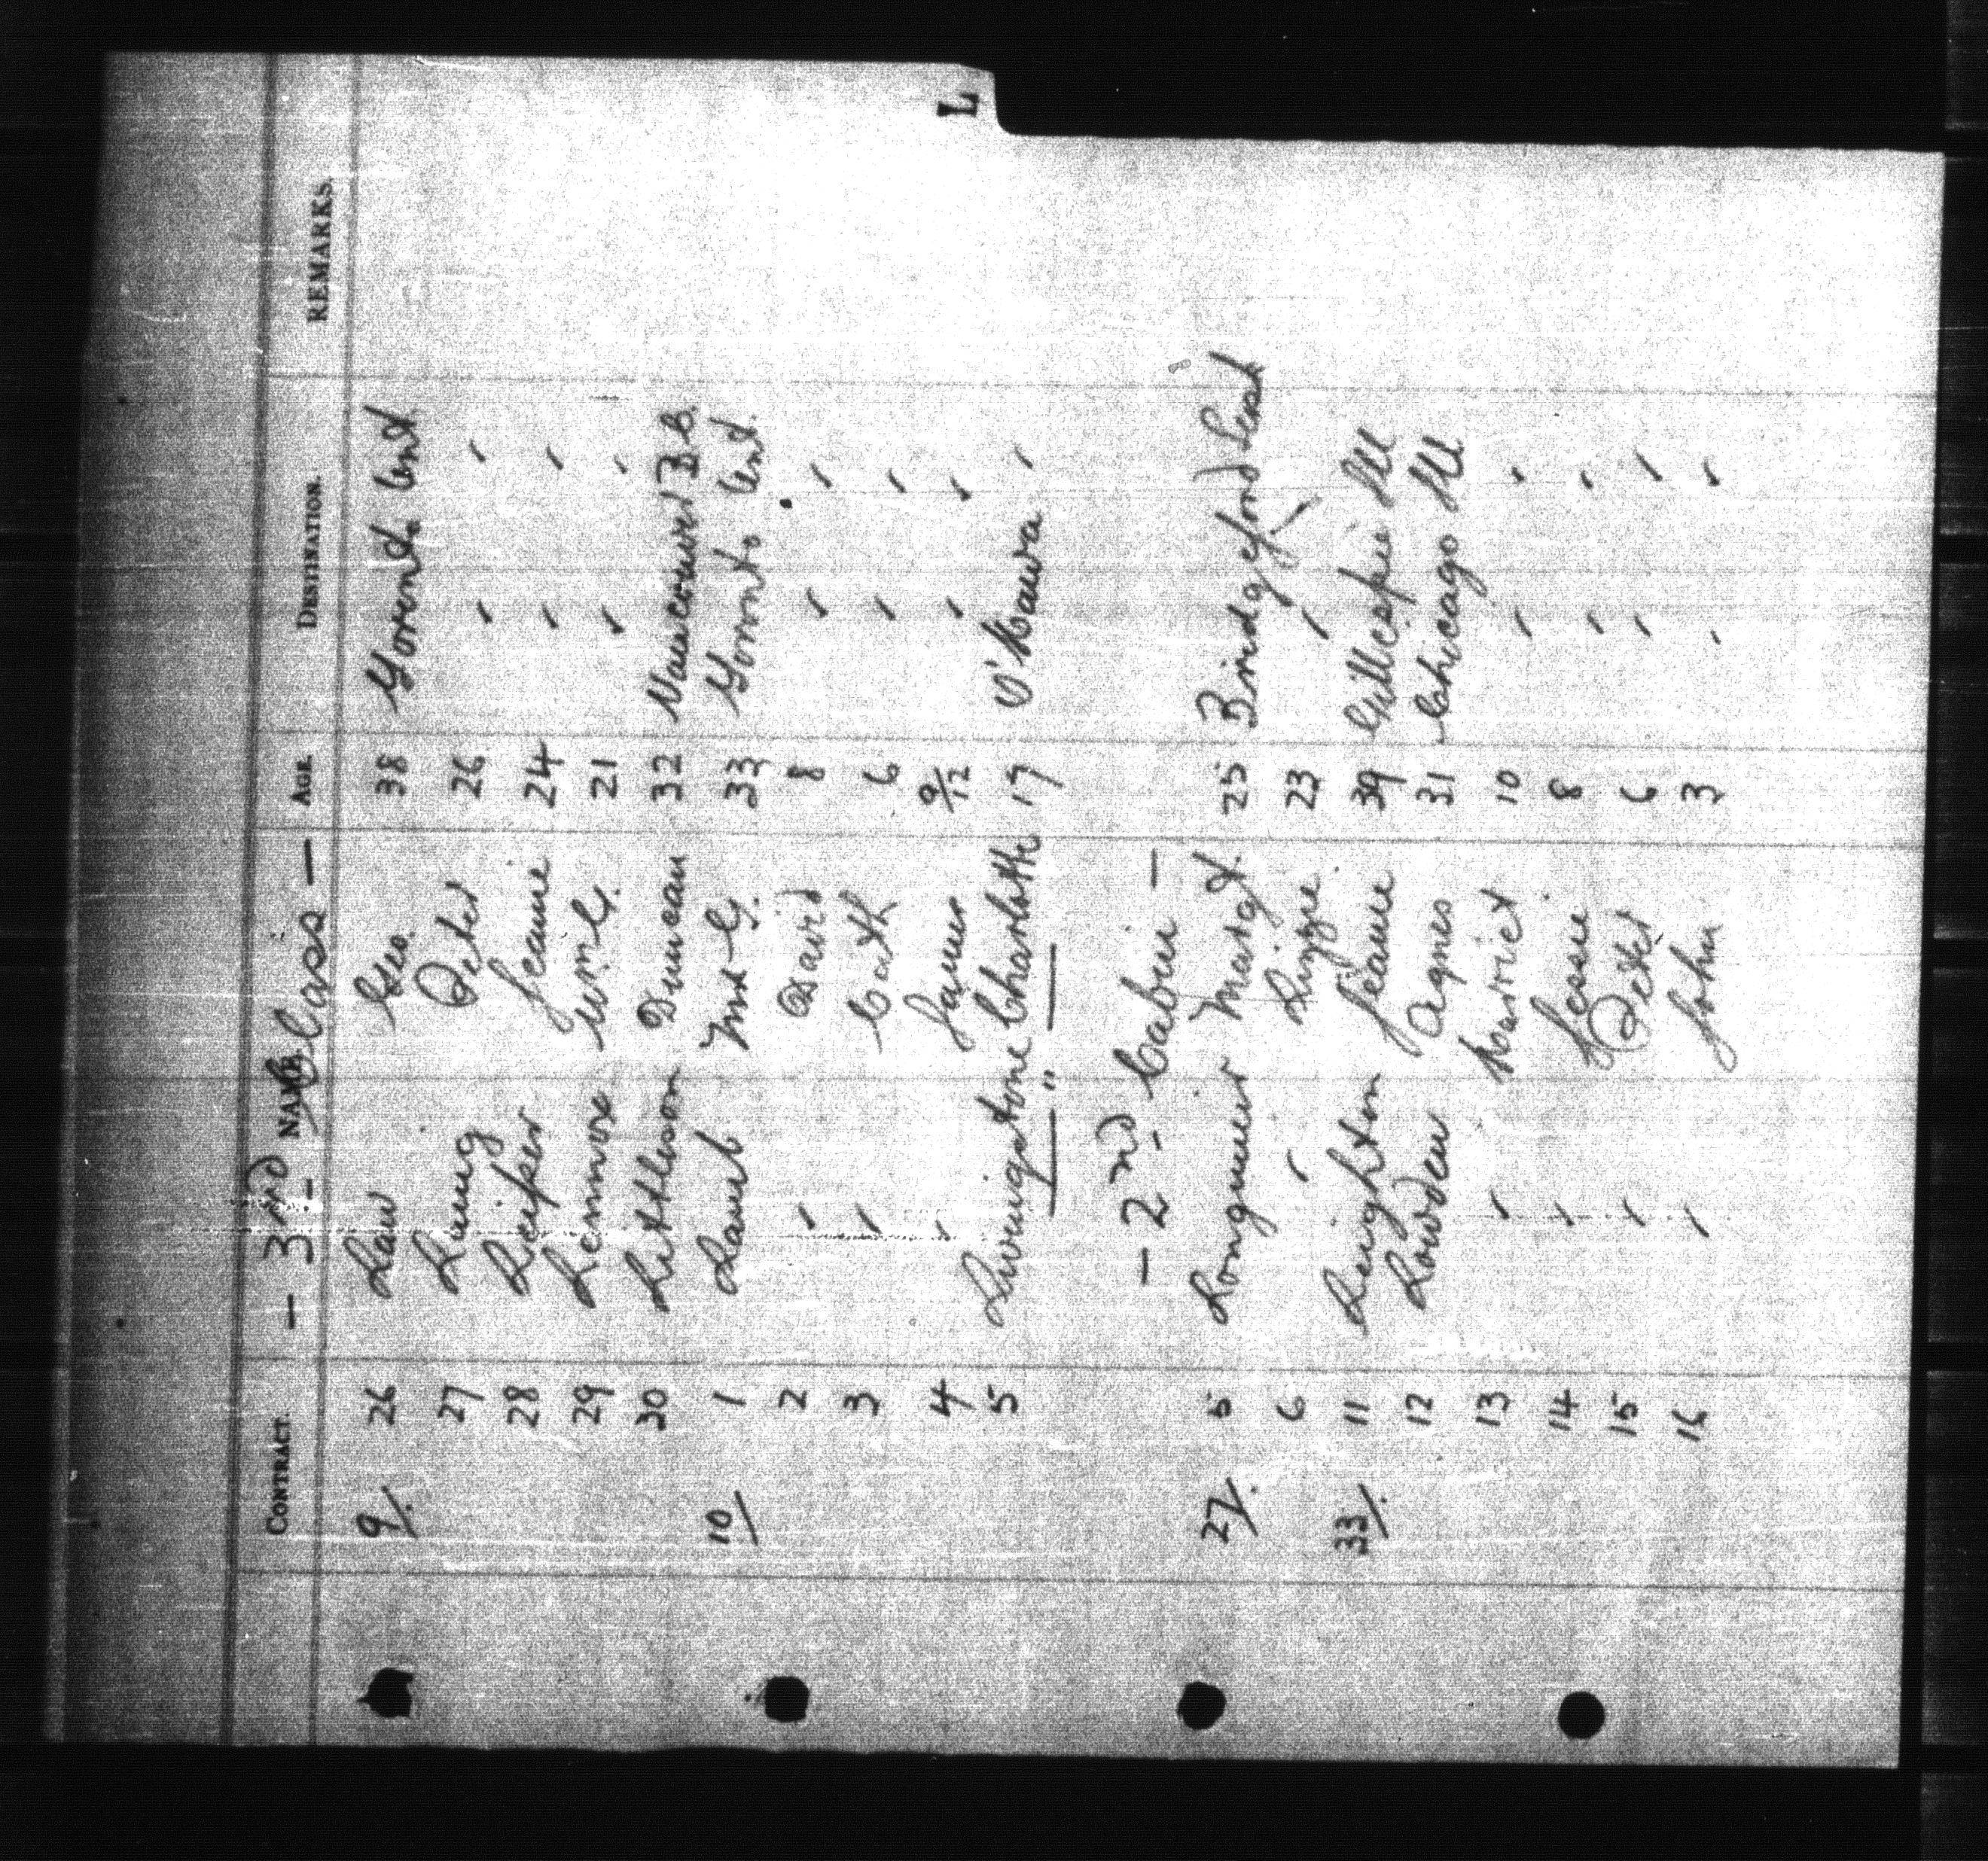 L
CONTRACT. NAME AGE DESTINATION. REMARKS.
— 3rd Class —
9/. 26 Law Geo. 38 Toronto Ont.
27 Laing Peter 26 " "
28 Leiper Jeanie 24 " "
29 Lennox Wm G. 21 " "
30 Littleson Duncan 32 Vancouver B.C.
10/ 1 Lamb Mrs G. 33 Toronto Ont.
2 " David 8 " "
3 " Cath 6 " "
4 " James 9/12 " "
5 Livingstone Charlotte 17 Ottawa "
"
— 2nd Cabin —
27/. 5 Longmuir Margt. 25 Bridgeford Sask
6 " Lizzie 23 " "
33/. 11 Leighton Jeanie 39 Gillespie Ill
12 Lowden Agnes 31 Chicago Ill
13 " Harriet 10 " "
14 " Jessie 8 " "
15 " Peter 6 " "
16 " John 3 " "